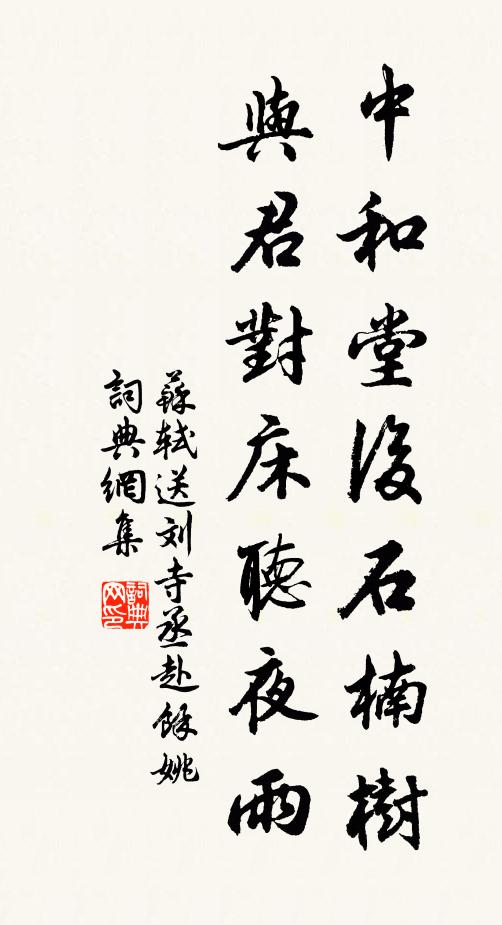 中和堂後石楠樹
與君對床聽夜雨
蘇軾送刘寺丞赴餘姚
詞典網集
詞典网印